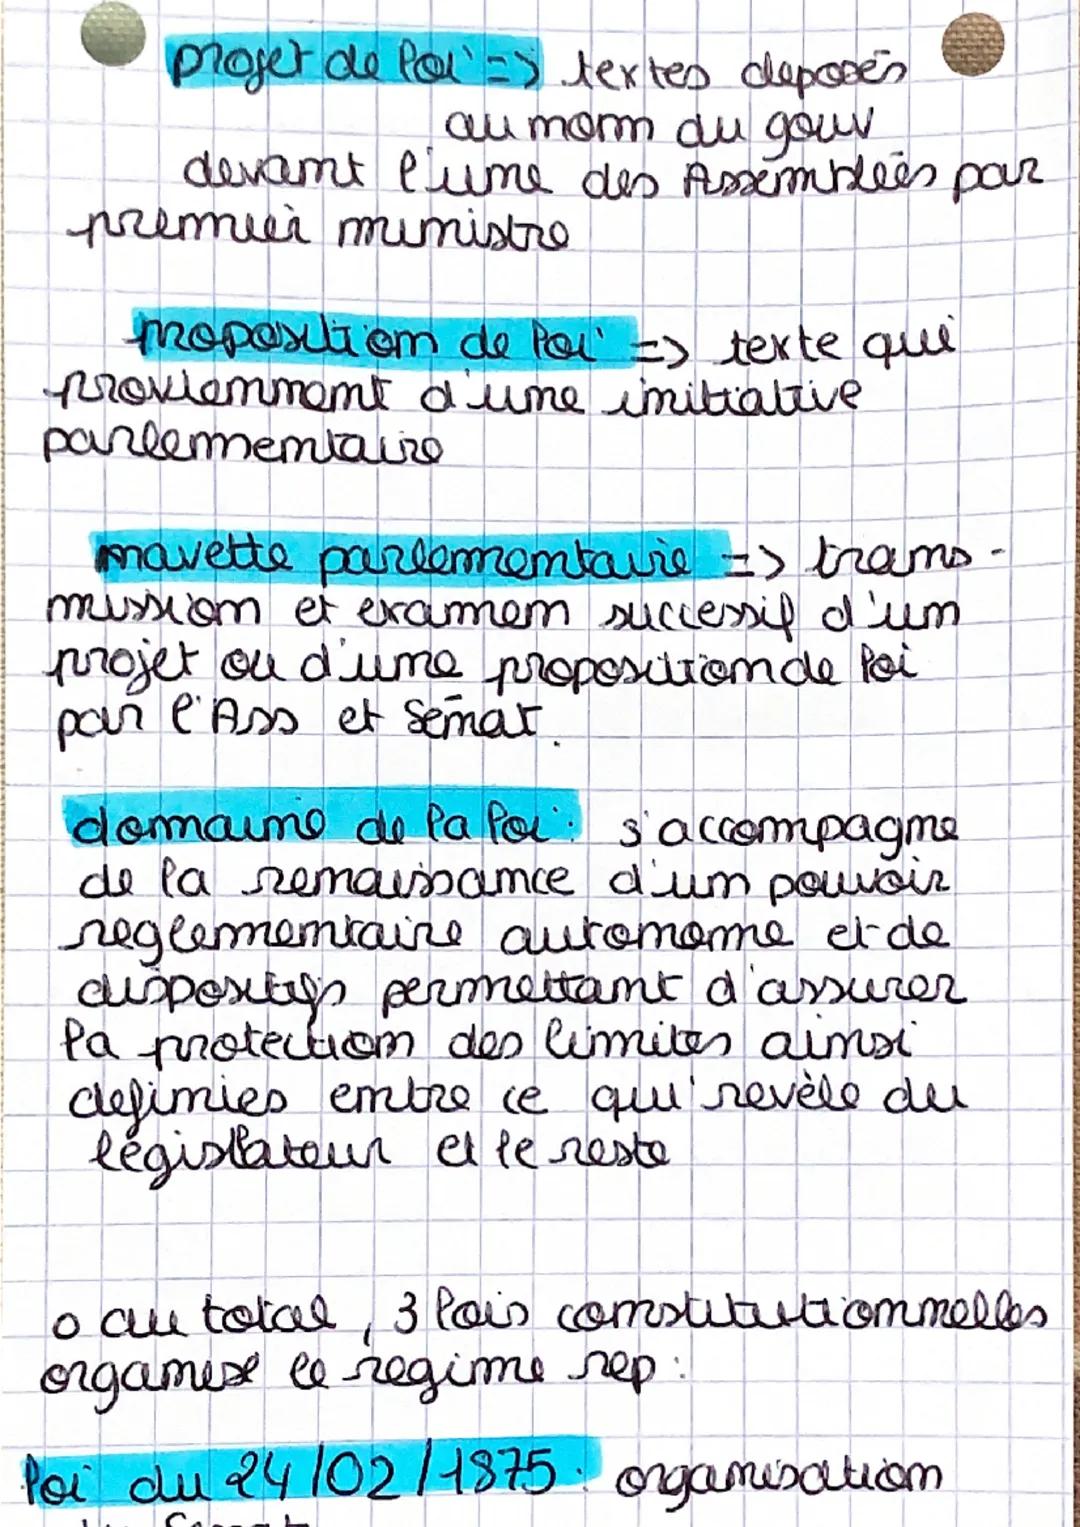 projet de loi => textes déposés
au nom du gouv
devant l'une des Assemblées par
premier ministre
proposition de loi => texte qui
proviennent d'une initiative
parlementaire
navette parlementaire => trans-
mission et examen successif d'un
projet ou d'une proposition de loi
par l'Ass et Sénat.
domaine de la loi : s'accompagne
de la renaissance d'un pouvoir
reglementaire autonome et de
dispositifs permettant d'assurer
la protection des limites ainsi
definies entre ce qui revèle du
législateur et le reste
o au total, 3 lois constitutionnelles
organise le regime rep :
loi du 24/02/1875 : organisation